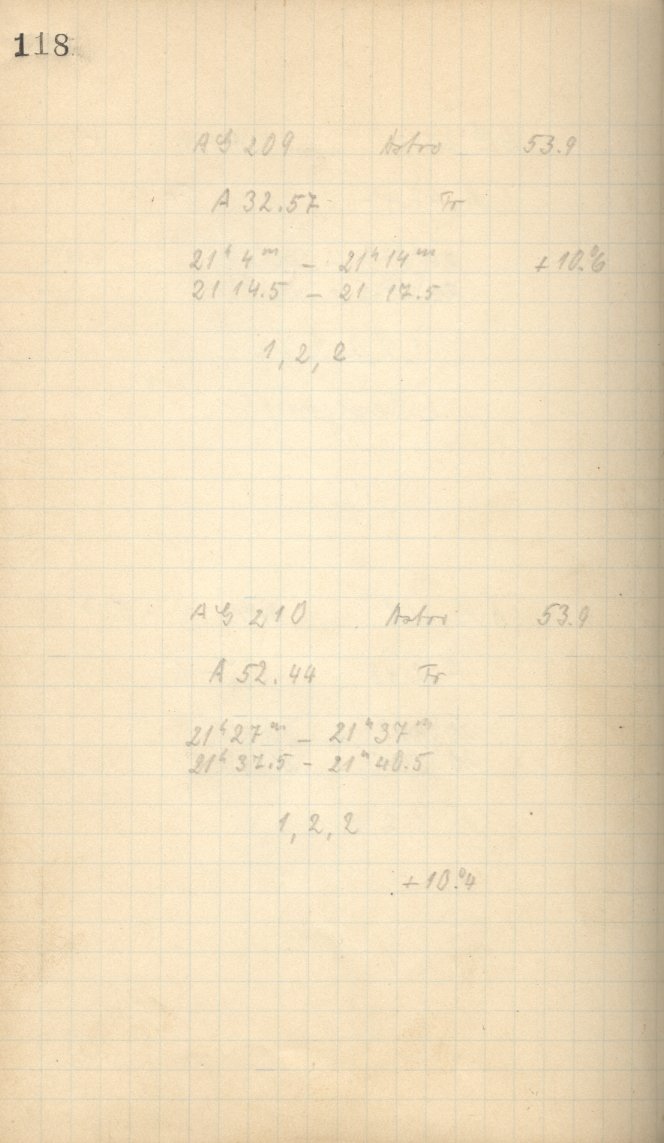 118
AG 209 Astro 53.9
A 32.57 Tr
21ʰ 4ᵐ – 21ʰ 14ᵐ +10.°6
21 14.5 – 21 17.5
1, 2, 2
AG 210 Astro 53.9
A 52.44 Tr
21ʰ 27ᵐ – 21ʰ 37ᵐ
21ʰ 37.5 – 21ʰ 40.5
1, 2, 2
+10.°4